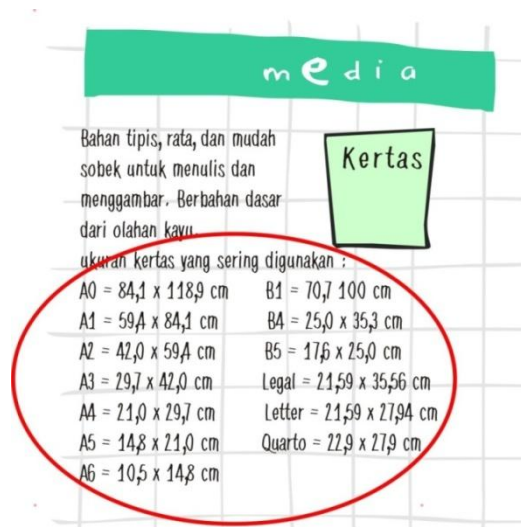 media
Bahan tipis, rata, dan mudah
sobek untuk menulis dan
menggambar. Berbahan dasar
dari olahan kayu.
Kertas
ukuran kertas yang sering digunakan :
A0 = 84,1 x 118,9 cm
A1 = 59,4 x 84,1 cm
A2 = 42,0 x 59,4 cm
A3 = 29,7 x 42,0 cm
A4 = 21,0 x 29,7 cm
A5 = 14,8 x 21,0 cm
A6 = 10,5 x 14,8 cm
B1 = 70,7 100 cm
B4 = 25,0 x 35,3 cm
B5 = 17,6 x 25,0 cm
Legal = 21,59 x 35,56 cm
Letter = 21,59 x 27,94 cm
Quarto = 22,9 x 27,9 cm